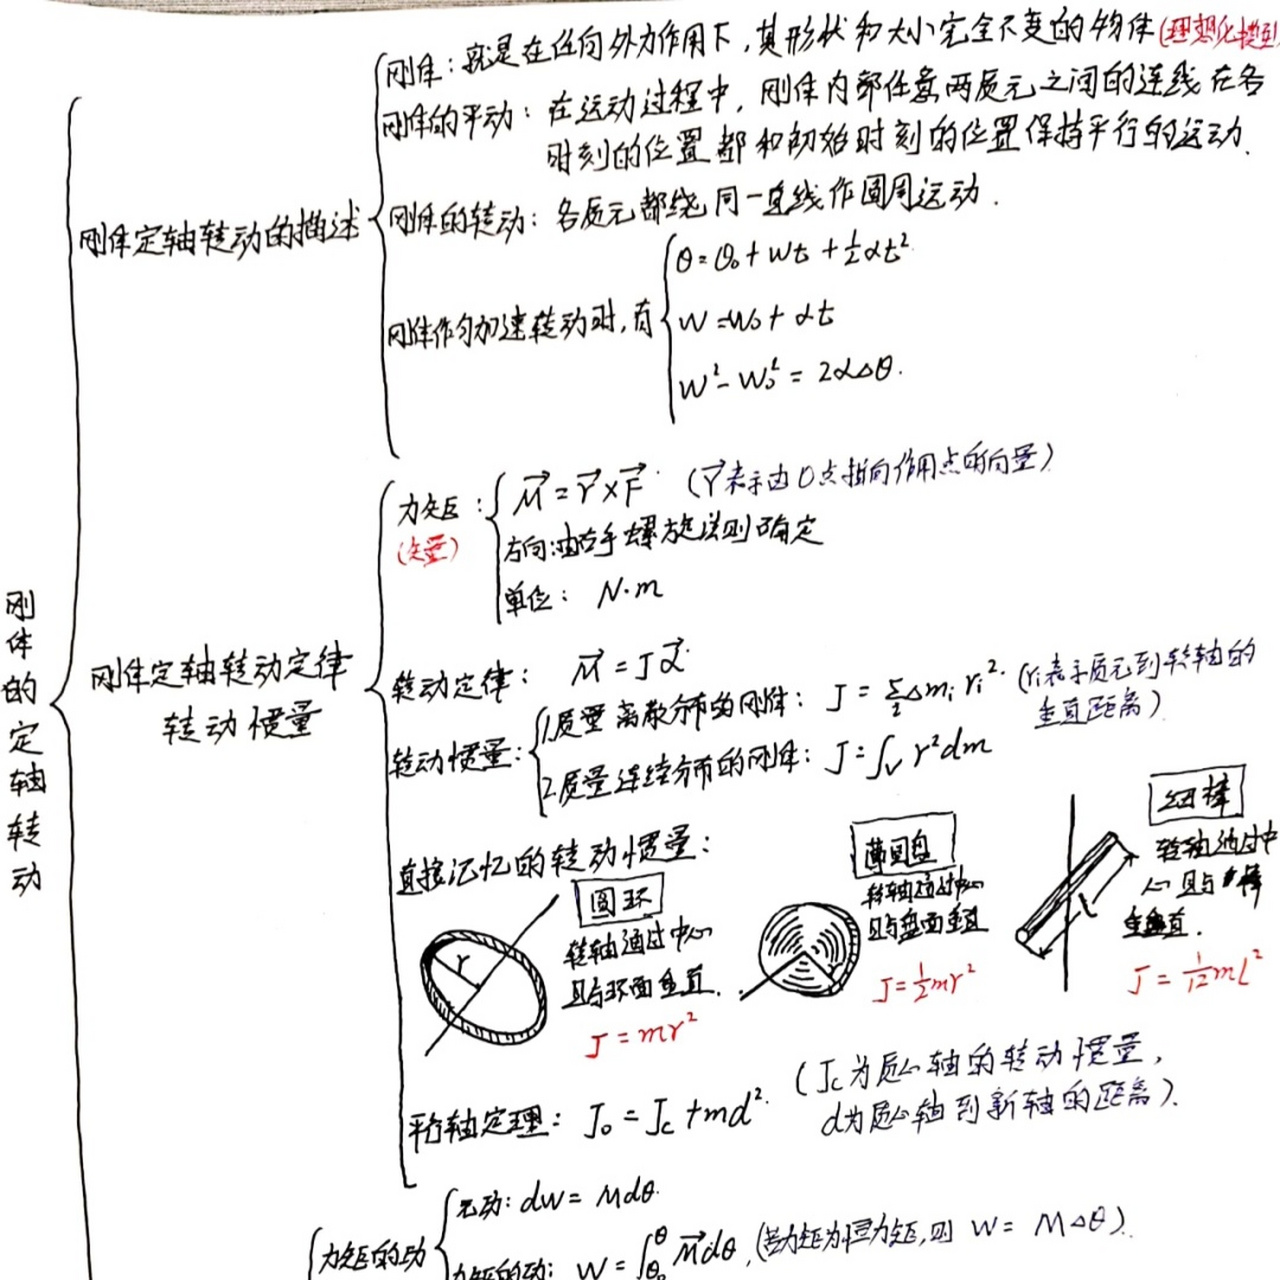 刚体的定轴转动
刚体定轴转动的描述
刚体：就是在任何外力作用下，其形状和大小完全不变的物体(理想化模型
刚体的平动：在运动过程中，刚体内部任意两质元之间的连线在各
时刻的位置都和初始时刻的位置保持平行的运动.
刚体的转动：各质元都绕同一直线作圆周运动.
刚体作匀加速转动时，有
θ=θ₀+wt+½αt²
w=w₀+αt
w²-w₀²=2αΔθ.
刚体定轴转动定律
转动惯量
力矩：
(矢量)
M⃗=r⃗×F⃗ (r⃗表示由O点指向作用点的向量)
方向:由右手螺旋法则确定
单位： N·m
转动定律： M⃗=Jα⃗
转动惯量:
1.质量离散分布的刚体： J=∑Δmᵢrᵢ². (rᵢ表示质元到转轴的
垂直距离)
2.质量连续分布的刚体： J=∫ᵥr²dm
直接记忆的转动惯量：
圆环
转轴通过中心
且与环面垂直.
r
J=mr²
薄圆盘
转轴通过中心
且与盘面垂直
r
J=½mr²
细棒
转轴通过中
心且与棒
垂直.
L
J=1/12mL²
平行轴定理： J₀=Jc+md². (Jc为质心轴的转动惯量，
d为质心轴到新轴的距离).
力矩的功
元功：dw=Mdθ.
力矩的功： W=∫θ₀^θ M⃗dθ.(若力矩为恒力矩,则 W=MΔθ).